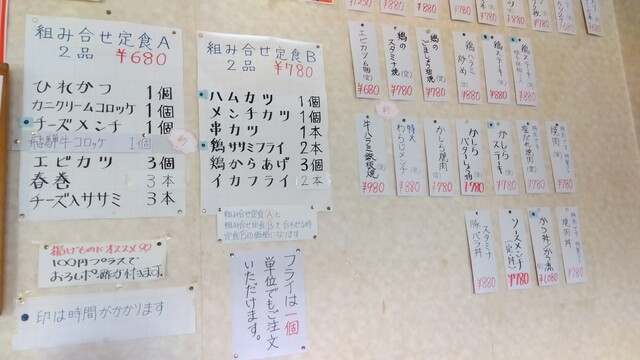 組み合せ定食A
2品 ¥680
ひれかつ 1個
カニクリームコロッケ 1個
チーズメンチ 1個
飛騨牛コロッケ 1個
エビカツ 3個
春巻 3本
チーズ入ササミ 3本
揚げものにオススメ
100円プラスで
おろしポン酢が付きます。
印は時間がかかります
組み合せ定食B
2品 ¥780
ハムカツ 1個
メンチカツ 1個
串カツ 1本
鶏ササミフライ 2本
鶏からあげ 3個
イカフライ 2本
組み合せ定食Aと
組み合せ定食Bを合わせる時
定食Bの価格になります
フライは一個
単位でもご注文
いただけます。
¥1250
¥880
¥780
¥780
¥780
¥780
エビカツ6個(定)
¥680
鶏のスタミナ焼(定)
¥780
¥780
鶏ハラミ炒め
¥780
鶏ステーキ
¥780
鶏ステーキ
¥780
牛ハラミ鉄板焼
¥980
特大わらじメンチ(定)
¥880
かしら焼肉(定)
¥780
かしらバターしょう油(定)
¥780
かしらステーキ(定)
¥780
¥780
焼肉(定)
¥780
スタミナ豚バラ丼
¥880
ソースメンチ(定丼)
¥780
¥1,080
焼肉丼
¥780